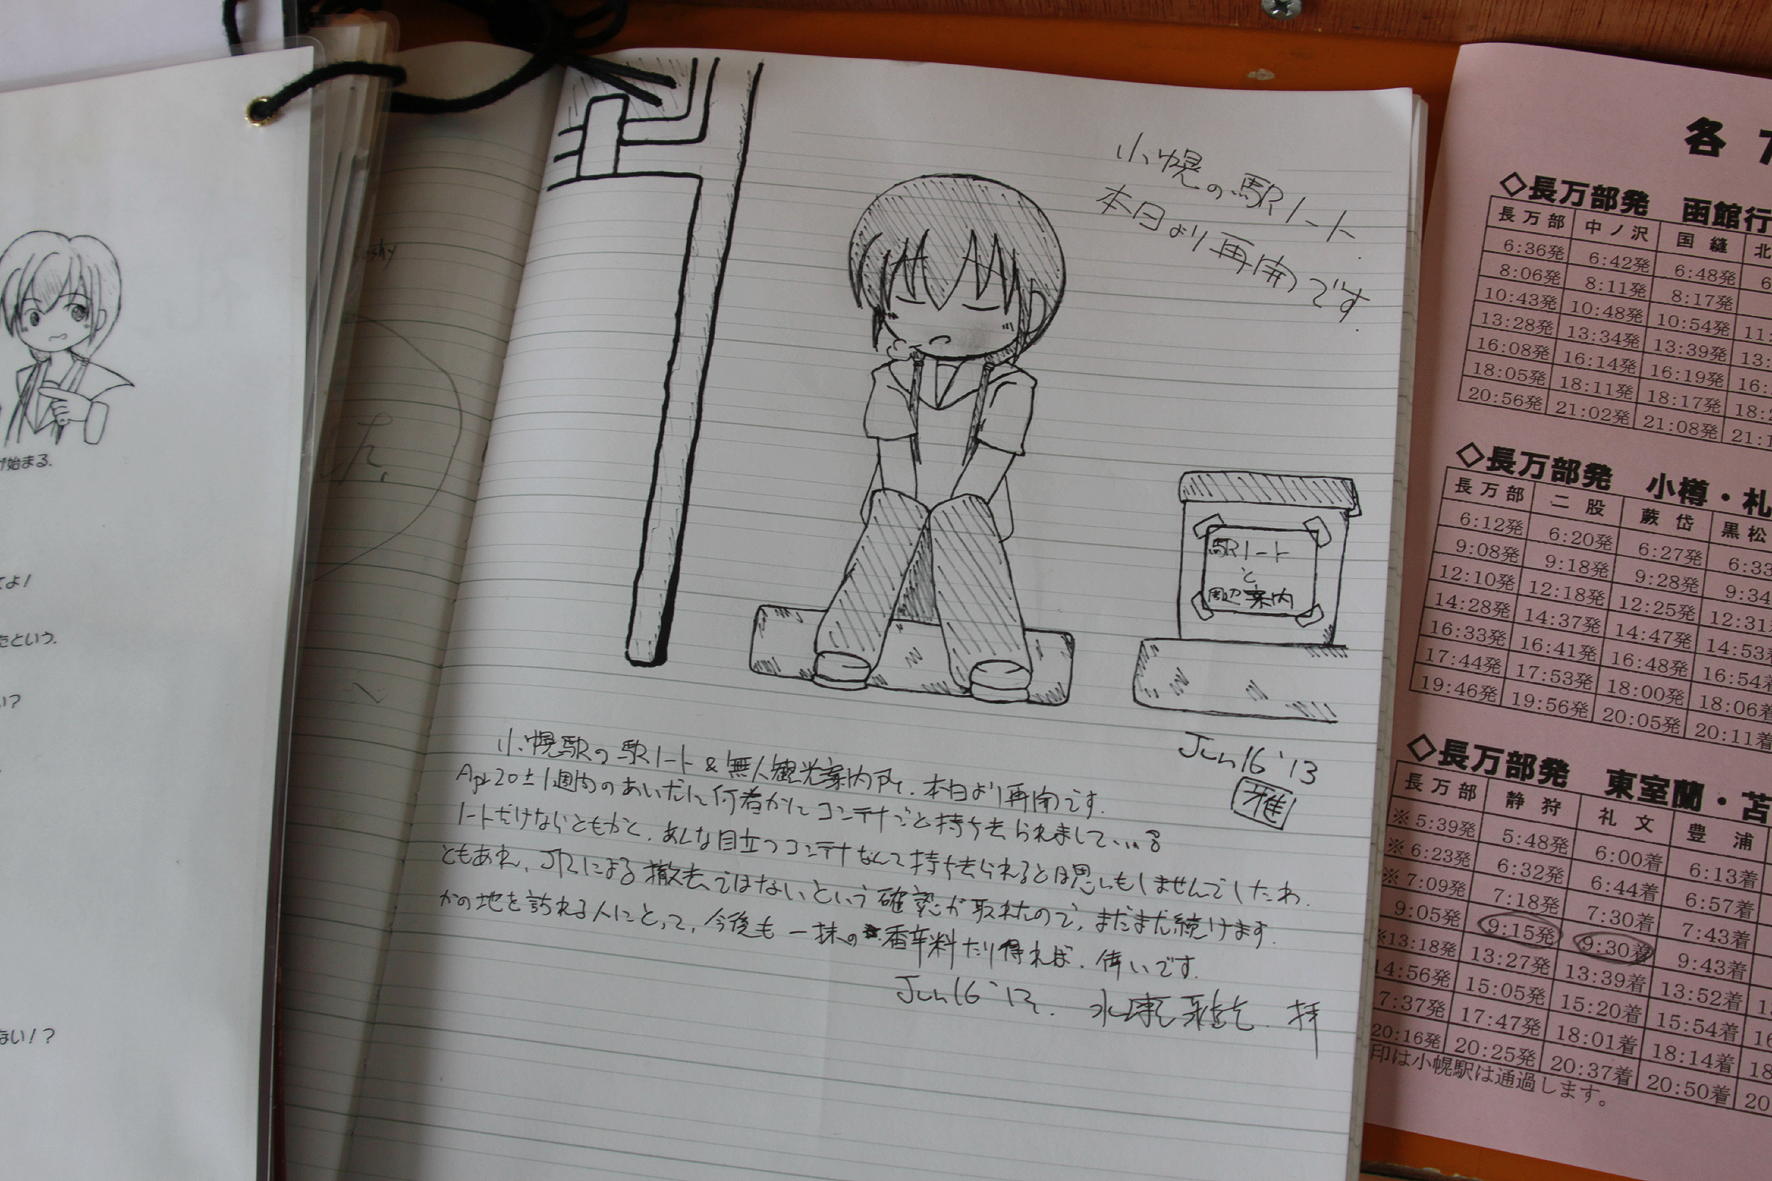 始まる.
てよ!
たという.
い?
ない!?
小幌の駅ノート
本日より再開です.
駅ノート
と
周辺案内
Jun 16 '13
雅
小幌駅の駅ノート&無人観光案内所、本日より再開です.
Apr 20±1週間のあいだに何者かにコンテナごと持ち去られまして...
ノートだけならともかく、あんな目立つコンテナなんて持ち去られるとは思いもしませんでしたわ.
ともあれ、JRによる撤去ではないという確認が取れたので、まだまだ続けます.
かの地を訪れる人にとって、今後も一抹の香辛料たり得れば、倖いです.
Jun 16 '13. 拝
各
◇長万部発 函館行
長万部 中ノ沢 国縫 北
6:36発 6:42発 6:48発 6
8:06発 8:11発 8:17発
10:43発 10:48発 10:54発 11:
13:28発 13:34発 13:39発 13:
16:08発 16:14発 16:19発 16:
18:05発 18:11発 18:17発 18:2
20:56発 21:02発 21:08発 21:1
◇長万部発 小樽・札
長万部 二股 蕨岱 黒松
6:12発 6:20発 6:27発 6:33
9:08発 9:18発 9:28発 9:34
12:10発 12:18発 12:25発 12:31
14:28発 14:37発 14:47発 14:53
16:33発 16:41発 16:48発 16:54着
17:44発 17:53発 18:00発 18:06着
19:46発 19:56発 20:05発 20:11着
◇長万部発 東室蘭・苫
長万部 静狩 礼文 豊浦
※5:39発 5:48発 6:00着 6:13着
※6:23発 6:32発 6:44着 6:57着
※7:09発 7:18発 7:30着 7:43着
9:05発 9:15発 9:30着 9:43着
※13:18発 13:27発 13:39着 13:52着
14:56発 15:05発 15:20着 15:54着
17:37発 17:47発 18:01着 18:14着
20:16発 20:25発 20:37着 20:50着
印は小幌駅は通過します。